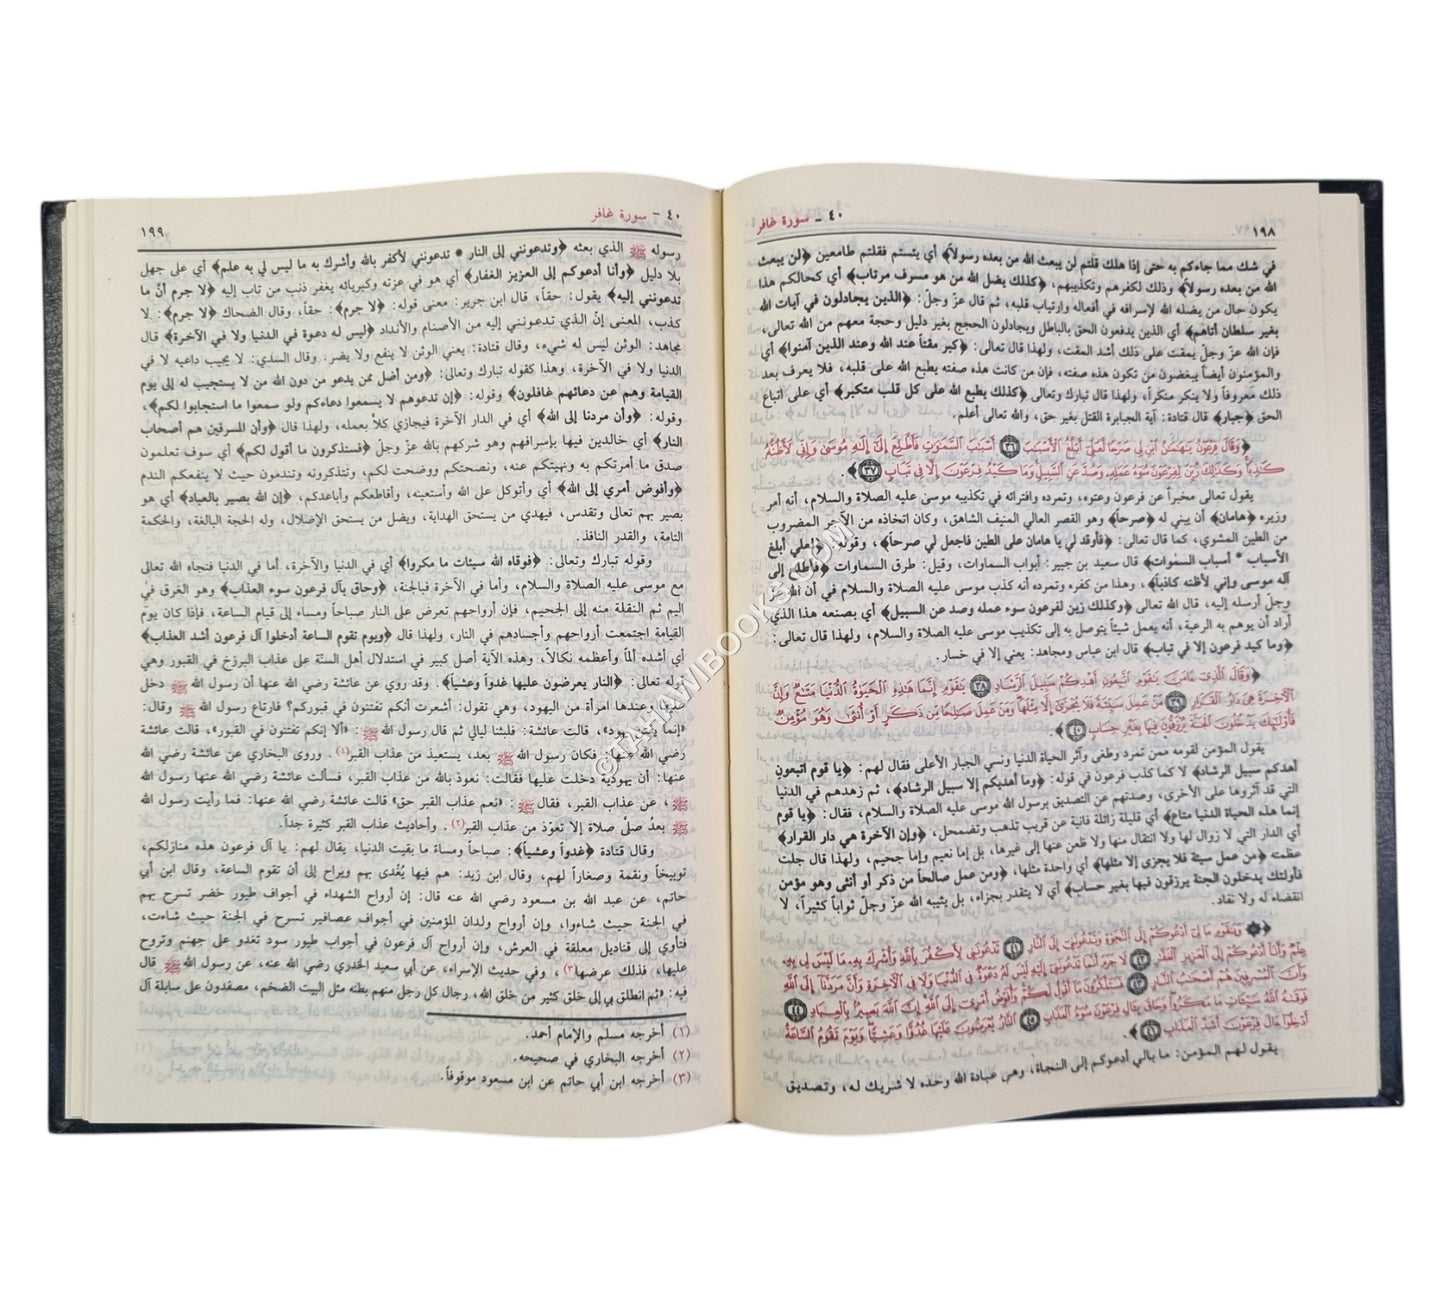 ٤٠ - سورة غافر
١٩٨
في شك مما جاءكم به حتى إذا هلك قلتم لن يبعث الله من بعده رسولاً﴾ أي يئستم فقلتم طامعين ﴿لن يبعث
الله من بعده رسولاً﴾ وذلك لكفرهم وتكذيبهم، ﴿كذلك يضل الله من هو مسرف مرتاب﴾ أي كحالكم هذا
يكون حال من يضله الله لإسرافه في أفعاله وارتياب قلبه، ثم قال عزّ وجلّ: ﴿الذين يجادلون في آيات الله
بغير سلطان أتاهم﴾ أي الذين يدفعون الحق بالباطل ويجادلون الحجج بغير دليل وحجة معهم من الله تعالى،
فإن الله عزّ وجلّ يمقت على ذلك أشد المقت، ولهذا قال تعالى: ﴿كبر مقتاً عند الله وعند الذين آمنوا﴾ أي
والمؤمنون أيضاً يبغضون من تكون هذه صفته، فإن من كانت هذه صفته يطبع الله على قلبه، فلا يعرف بعد
ذلك معروفاً ولا ينكر منكراً، ولهذا قال تبارك وتعالى ﴿كذلك يطبع الله على كل قلب متكبر﴾ أي على اتباع
الحق ﴿جبار﴾ قال قتادة: آية الجبابرة القتل بغير حق، والله تعالى أعلم.
﴿وَقَالَ فِرْعَوْنُ يَنهَمَنُ ابْنِ لِي صَرْحًا لَّعَلِّي أَبْلُغُ الْأَسْبَبَ ٣٦ أَسْبَبَ السَّمَوَتِ فَأَطَّلِعَ إِلَى إِلَهِ مُوسَى وَإِنِّي لَأَظُنُّهُ
كَذِبًا وَكَذَلِكَ زُيِّنَ لِفِرْعَوْنَ سُوءُ عَمَلِهِ وَصُدَّ عَنِ السَّبِيلِ وَمَا كَيْدُ فِرْعَوْنَ إِلَّا فِي تَبَابٍ ٣٧﴾.
يقول تعالى مخبراً عن فرعون وعتوه، وتمرده وافترائه في تكذيبه موسى عليه الصلاة والسلام، أنه أمر
وزيره ﴿هامان﴾ أن يبني له ﴿صرحاً﴾ وهو القصر العالي المنيف الشاهق، وكان اتخاذه من الآجر المضروب
من الطين المشوي، كما قال تعالى: ﴿فأوقد لي يا هامان على الطين فاجعل لي صرحاً﴾، وقوله: ﴿لعلي أبلغ
الأسباب * أسباب السموات﴾ قال سعيد بن جبير: أبواب السماوات، وقيل: طرق السماوات ﴿فأطلع إلى
آله موسى وإني لأظنه كاذباً﴾، وهذا من كفره وتمرده أنه كذب موسى عليه الصلاة والسلام في أن الله عزّ
وجلّ أرسله إليه، قال الله تعالى ﴿وكذلك زين لفرعون سوء عمله وصد عن السبيل﴾ أي بصنعه هذا الذي
أراد أن يوهم به الرعية، أنه يعمل شيئاً يتوصل به إلى تكذيب موسى عليه الصلاة والسلام، ولهذا قال تعالى:
﴿وما كيد فرعون إلا في تباب﴾ قال ابن عباس ومجاهد: يعني إلا في خسار.
﴿وَقَالَ الَّذِي ءَامَنَ يَقَوْمِ اتَّبِعُونِ أَهْدِكُمْ سَبِيلَ الرَّشَادِ ٣٨ يَقَوْمِ إِنَّمَا هَذِهِ الْحَيَوةُ الدُّنْيَا مَتَعٌ وَإِنَّ
الْآخِرَةَ هِيَ دَارُ الْقَرَارِ ٣٩ مَنْ عَمِلَ سَيِّئَةً فَلَا يُجْزَى إِلَّا مِثْلَهَا وَمَنْ عَمِلَ صَلِحًا مِّن ذَكَرٍ أَوْ أُنثَى وَهُوَ مُؤْمِنٌ
فَأُوْلَئِكَ يَدْخُلُونَ الْجَنَّةَ يُرْزَقُونَ فِيهَا بِغَيْرِ حِسَابٍ ٤٠﴾.
يقول المؤمن لقومه ممن تمرد وطغى وآثر الحياة الدنيا ونسي الجبار الأعلى فقال لهم: ﴿يا قوم اتبعون
أهدكم سبيل الرشاد﴾ لا كما كذب فرعون في قوله: ﴿وما أهديكم إلا سبيل الرشاد﴾، ثم زهدهم في الدنيا
التي قد آثروها على الأخرى، وصدتهم عن التصديق برسول الله موسى عليه الصلاة والسلام، فقال: ﴿يا قوم
إنما هذه الحياة الدنيا متاع﴾ أي قليلة زائلة فانية عن قريب تذهب وتضمحل، ﴿وإن الآخرة هي دار القرار﴾
أي الدار التي لا زوال لها ولا انتقال منها ولا ظعن عنها إلى غيرها، بل إما نعيم وإما جحيم، ولهذا قال جلت
عظمته ﴿من عمل سيئة فلا يجزى إلا مثلها﴾ أي واحدة مثلها، ﴿ومن عمل صالحاً من ذكر أو أنثى وهو مؤمن
فأولئك يدخلون الجنة يرزقون فيها بغير حساب﴾ أي لا يتقدر بجزاء، بل يثيبه الله عزّ وجلّ ثواباً كثيراً، لا
انقضاء له ولا نفاد.
﴿وَيَقَوْمِ مَا لِي أَدْعُوكُمْ إِلَى النَّجَوةِ وَتَدْعُونَنِي إِلَى النَّارِ ٤١ تَدْعُونَنِي لِأَكْفُرَ بِاللَّهِ وَأُشْرِكَ بِهِ مَا لَيْسَ لِي بِهِ
عِلْمٌ وَأَنَا أَدْعُوكُمْ إِلَى الْعَزِيزِ الْغَفَّرِ ٤٢ لَا جَرَمَ أَنَّمَا تَدْعُونَنِي إِلَيْهِ لَيْسَ لَهُ دَعْوَةٌ فِي الدُّنْيَا وَلَا فِي الْآخِرَةِ وَأَنَّ مَرَدَّنَا إِلَى اللَّهِ
وَأَنَّ الْمُسْرِفِينَ هُمْ أَصْحَبُ النَّارِ ٤٣ فَسَتَذْكُرُونَ مَا أَقُولُ لَكُمْ وَأُفَوِّضُ أَمْرِي إِلَى اللَّهِ إِنَّ اللَّهَ بَصِيرٌ بِالْعِبَادِ ٤٤
فَوَقَاهُ اللَّهُ سَيِّئَاتِ مَا مَكَرُوا وَحَاقَ بِآلِ فِرْعَوْنَ سُوءُ الْعَذَابِ ٤٥ النَّارُ يُعْرَضُونَ عَلَيْهَا غُدُوًّا وَعَشِيًّا وَيَوْمَ تَقُومُ السَّاعَةُ
أَدْخِلُوا آلَ فِرْعَوْنَ أَشَدَّ الْعَذَابِ ٤٦﴾.
يقول لهم المؤمن: ما بالي أدعوكم إلى النجاة، وهي عبادة الله وحده لا شريك له، وتصديق
٤٠ - سورة غافر
١٩٩
رسوله ﷺ الذي بعثه ﴿وتدعونني إلى النار * تدعونني لأكفر بالله وأشرك به ما ليس لي به علم﴾ أي على جهل
بلا دليل ﴿وأنا أدعوكم إلى العزيز الغفار﴾ أي هو في عزته وكبريائه يغفر ذنب من تاب إليه ﴿لا جرم أنّ ما
تدعونني إليه﴾ يقول: حقاً، قال ابن جرير: معنى قوله: ﴿لا جرم﴾: حقاً، وقال الضحاك ﴿لا جرم﴾: لا
كذب، المعنى إنّ الذي تدعونني إليه من الأصنام والأنداد ﴿ليس له دعوة في الدنيا ولا في الآخرة﴾ قال
مجاهد: الوثن ليس له شيء، وقال قتادة: يعني الوثن لا ينفع ولا يضر. وقال السدي: لا يجيب داعيه لا في
الدنيا ولا في الآخرة، وهذا كقوله تبارك وتعالى: ﴿ومن أضل ممن يدعو من دون الله من لا يستجيب له إلى يوم
القيامة وهم عن دعائهم غافلون﴾ وقوله: ﴿إن تدعوهم لا يسمعوا دعاءكم ولو سمعوا ما استجابوا لكم﴾،
وقوله: ﴿وأن مردنا إلى الله﴾ أي في الدار الآخرة فيجازي كلاً بعمله، ولهذا قال ﴿وأن المسرفين هم أصحاب
النار﴾ أي خالدين فيها بإسرافهم وهو شركهم بالله عزّ وجلّ ﴿فستذكرون ما أقول لكم﴾ أي سوف تعلمون
صدق ما أمرتكم به ونهيتكم عنه، ونصحتكم ووضحت لكم، وتتذكرونه وتندمون حيث لا ينفعكم الندم
﴿وأفوض أمري إلى الله﴾ أي وأتوكل على الله وأستعينه، وأقاطعكم وأباعدكم، ﴿إن الله بصير بالعباد﴾ أي هو
بصير بهم تعالى وتقدس، فيهدي من يستحق الهداية، ويضل من يستحق الإضلال، وله الحجة البالغة، والحكمة
التامة، والقدر النافذ.
وقوله تبارك وتعالى: ﴿فوقاه الله سيئات ما مكروا﴾ أي في الدنيا والآخرة، أما في الدنيا فنجاه الله تعالى
مع موسى عليه الصلاة والسلام، وأما في الآخرة فبالجنة، ﴿وحاق بآل فرعون سوء العذاب﴾ وهو الغرق في
اليم ثم النقلة منه إلى الجحيم، فإن أرواحهم تعرض على النار صباحاً ومساء إلى قيام الساعة، فإذا كان يوم
القيامة اجتمعت أرواحهم وأجسادهم في النار، ولهذا قال ﴿ويوم تقوم الساعة أدخلوا آل فرعون أشد العذاب﴾
أي أشده ألماً وأعظمه نكالاً، وهذه الآية أصل كبير في استدلال أهل السنّة على عذاب البرزخ في القبور وهي
قوله تعالى: ﴿النار يعرضون عليها غدواً وعشياً﴾. وقد روي عن عائشة رضي الله عنها أن رسول الله ﷺ دخل
عليها وعندها امرأة من اليهود، وهي تقول: أشعرت أنكم تفتنون في قبوركم؟ فارتاع رسول الله ﷺ وقال:
«إنما يفتن يهود»، قالت عائشة: فلبثنا ليالي ثم قال رسول الله ﷺ: «ألا إنكم تفتنون في القبور»، قالت عائشة
رضي الله عنها: فكان رسول الله ﷺ بعد، يستعيذ من عذاب القبر(١). وروى البخاري عن عائشة رضي الله
عنها: أن يهودية دخلت عليها فقالت: نعوذ بالله من عذاب القبر، فسألت عائشة رضي الله عنها رسول الله
ﷺ، عن عذاب القبر، فقال ﷺ: «نعم عذاب القبر حق» قالت عائشة رضي الله عنها: فما رأيت رسول الله
ﷺ بعدُ صلّى صلاة إلا تعوّذ من عذاب القبر(٢). وأحاديث عذاب القبر كثيرة جداً.
وقال قتادة ﴿غدواً وعشياً﴾: صباحاً ومساءً ما بقيت الدنيا، يقال لهم: يا آل فرعون هذه منازلكم،
توبيخاً ونقمة وصغاراً لهم، وقال ابن زيد: هم فيها يُغْدى بهم ويراح إلى أن تقوم الساعة، وقال ابن أبي
حاتم، عن عبد الله بن مسعود رضي الله عنه قال: إن أرواح الشهداء في أجواف طيور خضر تسرح بهم
في الجنة حيث شاءوا، وإن أرواح ولدان المؤمنين في أجواف عصافير تسرح في الجنة حيث شاءت،
فتأوي إلى قناديل معلقة في العرش، وإن أرواح آل فرعون في أجواب طيور سود تغدو على جهنم وتروح
عليها، فذلك عرضها(٣)، وفي حديث الإسراء، عن أبي سعيد الخدري رضي الله عنه، عن رسول الله ﷺ قال
فيه: «ثم انطلق بي إلى خلق كثير من خلق الله، رجال كل رجل منهم بطنه مثل البيت الضخم، مصفدون على سابلة آل
(١) أخرجه مسلم والإمام أحمد.
(٢) أخرجه البخاري في صحيحه.
(٣) أخرجه ابن أبي حاتم عن ابن مسعود موقوفاً.
©TAHAWIBOOKS.COM